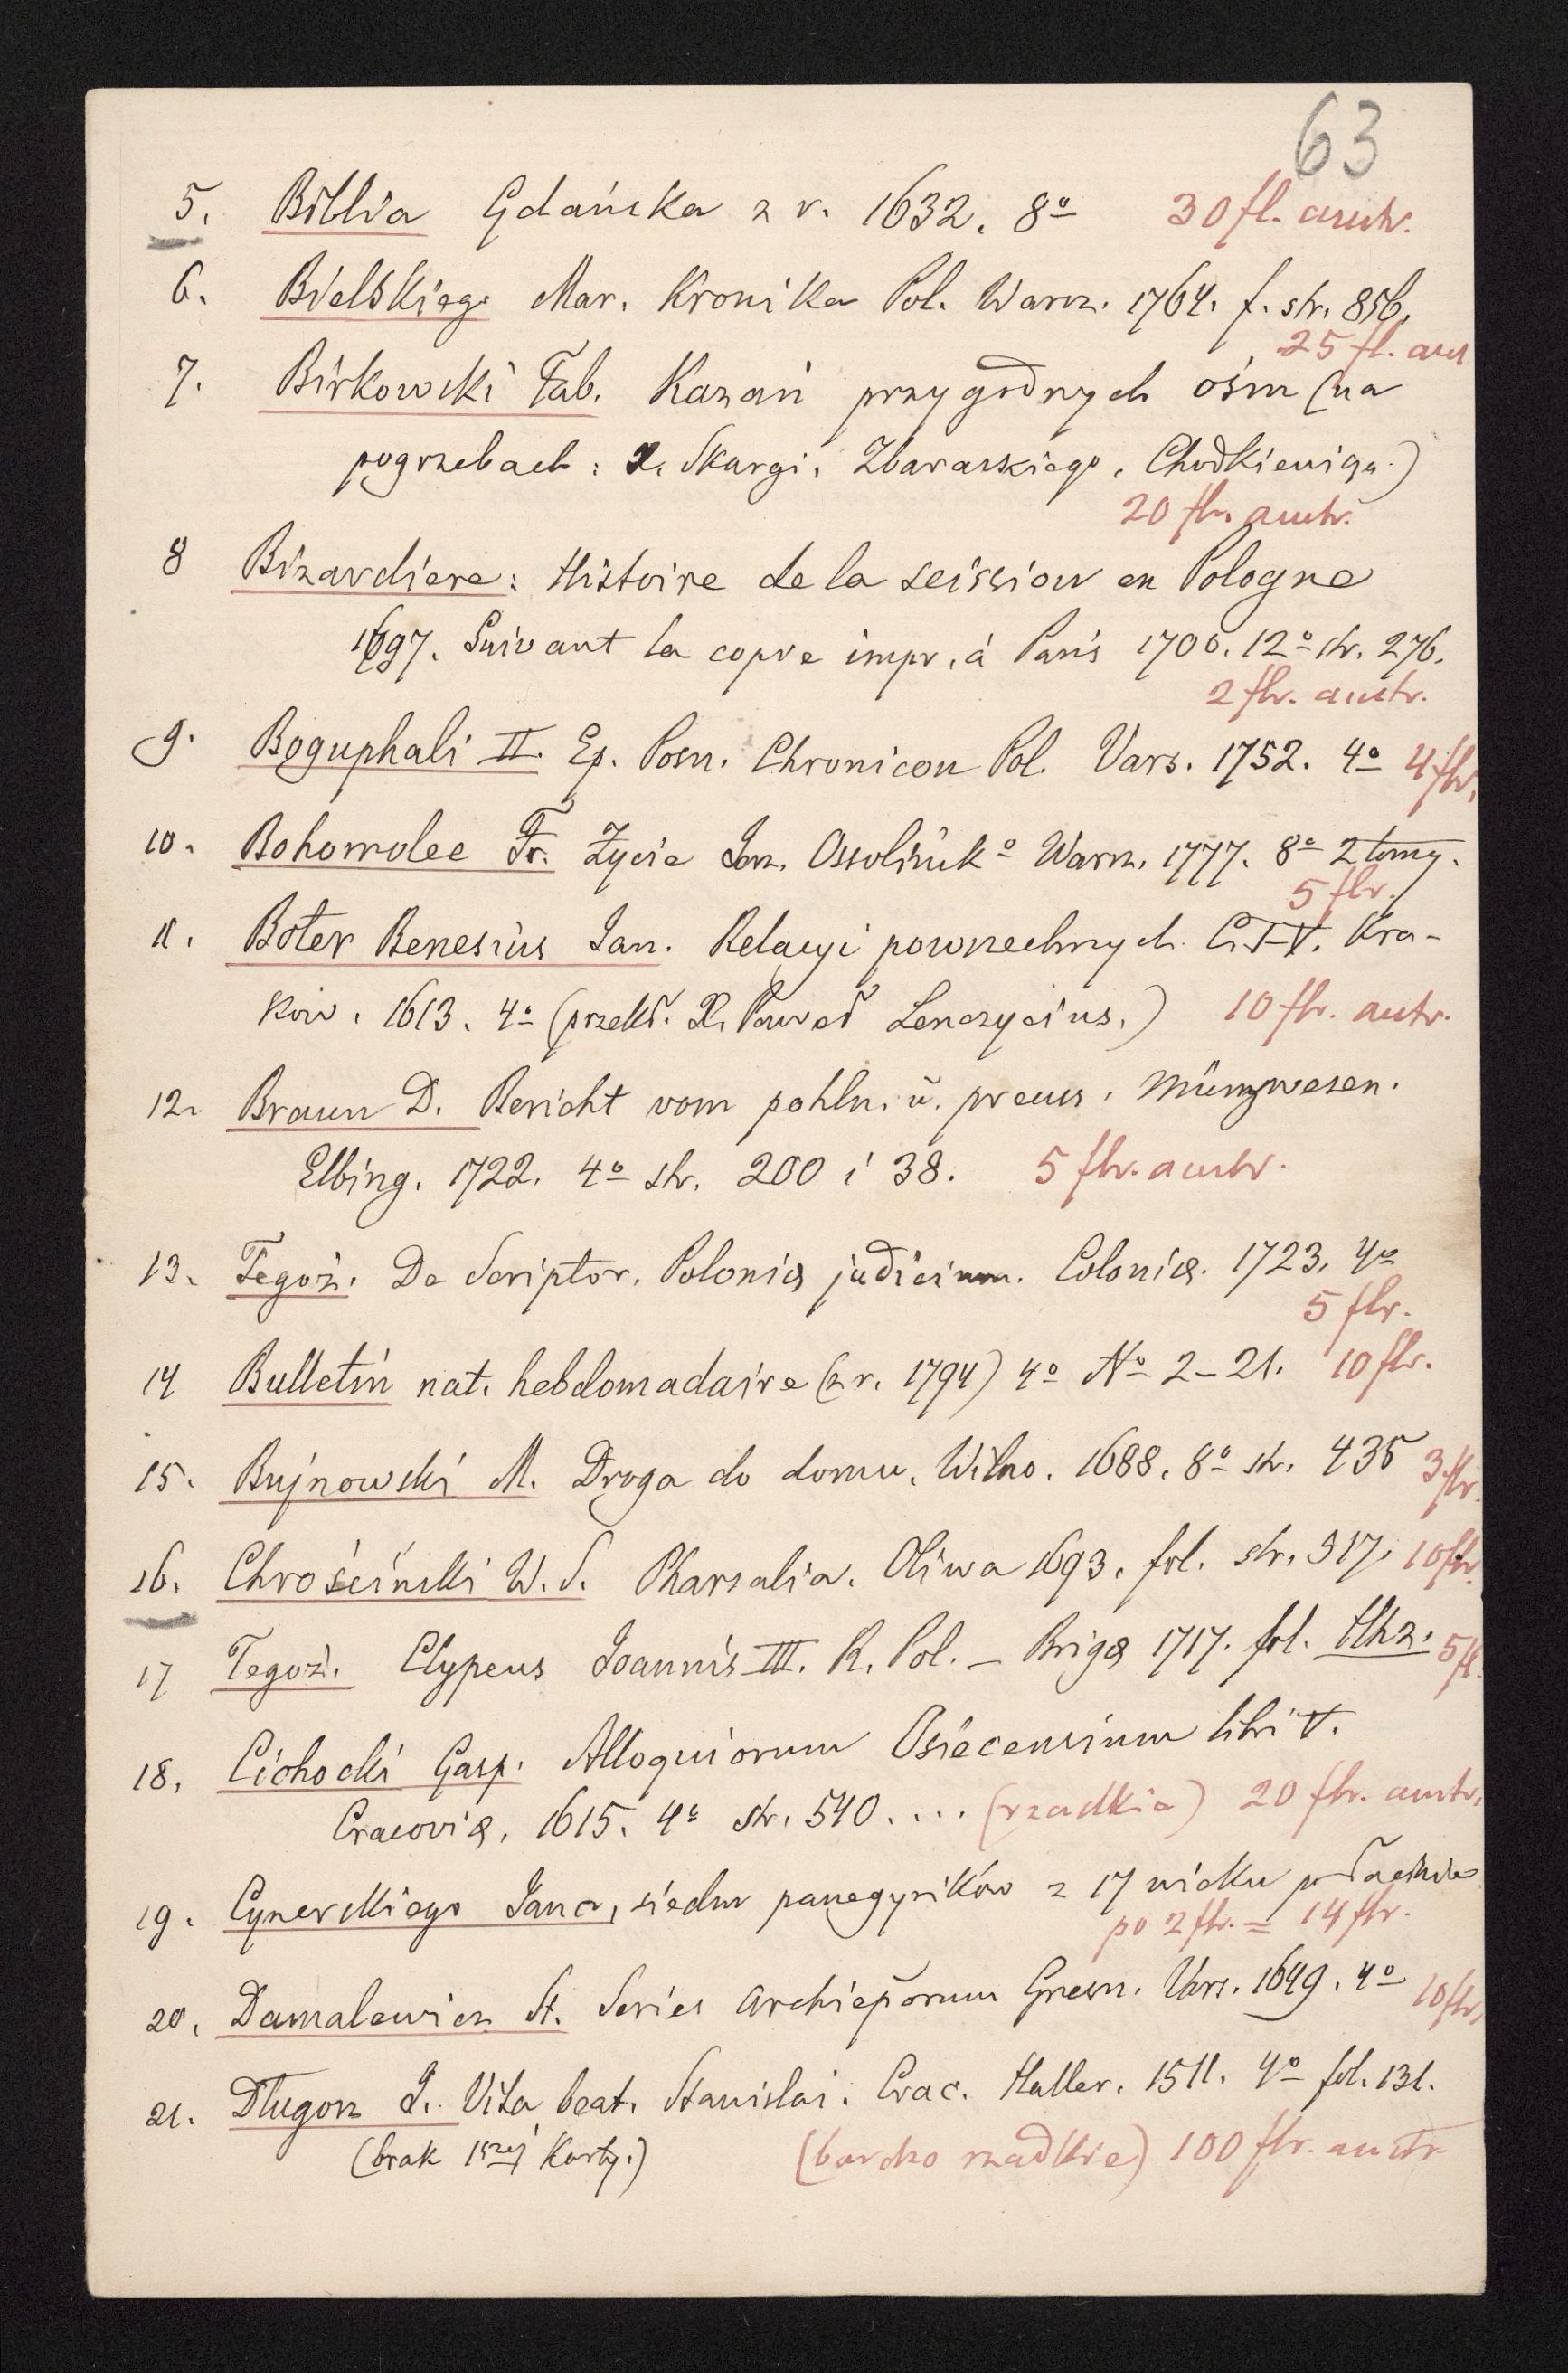 63
5. Biblia Gdańska z r. 1632. 8º 30 fl. austr.
6. Bielskiego Mar. Kronika Pol. Warsz. 1764. f. str. 856.
25 fl. aus
7. Birkowski Fab. Kazań przygodnych ośm (na
pogrzebach: X. Skargi, Zbaraskiego, Chodkiewicza.)
20 flr. austr.
8 Bizardiere: Histoire de la scission en Pologne
1697. Suivant la copie impr. à Paris 1700. 12º str. 276.
2 flr. austr.
9. Boguphali II. Ep. Posn. Chronicon Pol. Vars. 1752. 4º 4 flr.
10. Bohomolec Fr. Życie Jerz. Ossolińskº Warsz. 1777. 8º 2 tomy.
5 flr.
11. Boter Benesius Jan. Relacyi powszechnych C. I-V. Kra-
ków. 1613. 4º (przekł. X. Paweł Lenczycius.) 10 flr. autr.
12. Braun D. Bericht vom pohln. ü. preus. Münzwesen.
Elbing. 1722. 4º str. 200 i 38. 5 flr. austr.
13. Tegoż. De Scriptor. Poloniæ judicium. Coloniæ. 1723. 4º
5 flr.
14 Bulletin nat. hebdomadaire (z r. 1794) 4º Nº 2–21. 10 flr.
15. Bujnowski M. Droga do domu. Wilno. 1688. 8º str. 435 3 flr.
16. Chrościński W. S. Pharsalia. Oliwa 1693. fol. str. 317. 10 flr.
17 Tegoż. Clypeus Joannis III. R. Pol. – Brigæ 1717. fol. 5 fl.
18. Cichocki Gasp. Alloquiorum Osiecensium libri V.
Cracoviæ. 1615. 4º str. 540.... (rzadkie) 20 flr. austr.
19. Cynerskiego Jana, siedm panegyrików z 17 wieku po łacinie
po 2 flr. = 14 flr.
20. Damalewicz St. Series archieporum Gnesn. Vars. 1649. 4º 10 flr.
21. Długosz J. Vita beat. Stanislai. Crac. Haller. 1511. 4º fol. 131.
(brak 1szej Karty.) (bardzo rzadkie) 100 flr. austr